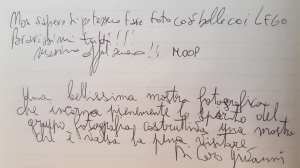 Non sapevo si potessero fare foto così belle coi LEGO
Bravissimi tutti!!!
!! MOOP
Una bellissima mostra fotografica
che incarna pienamente lo spirito del
gruppo fotografia costruttiva. Una mostra
che è valsa la pena visitare